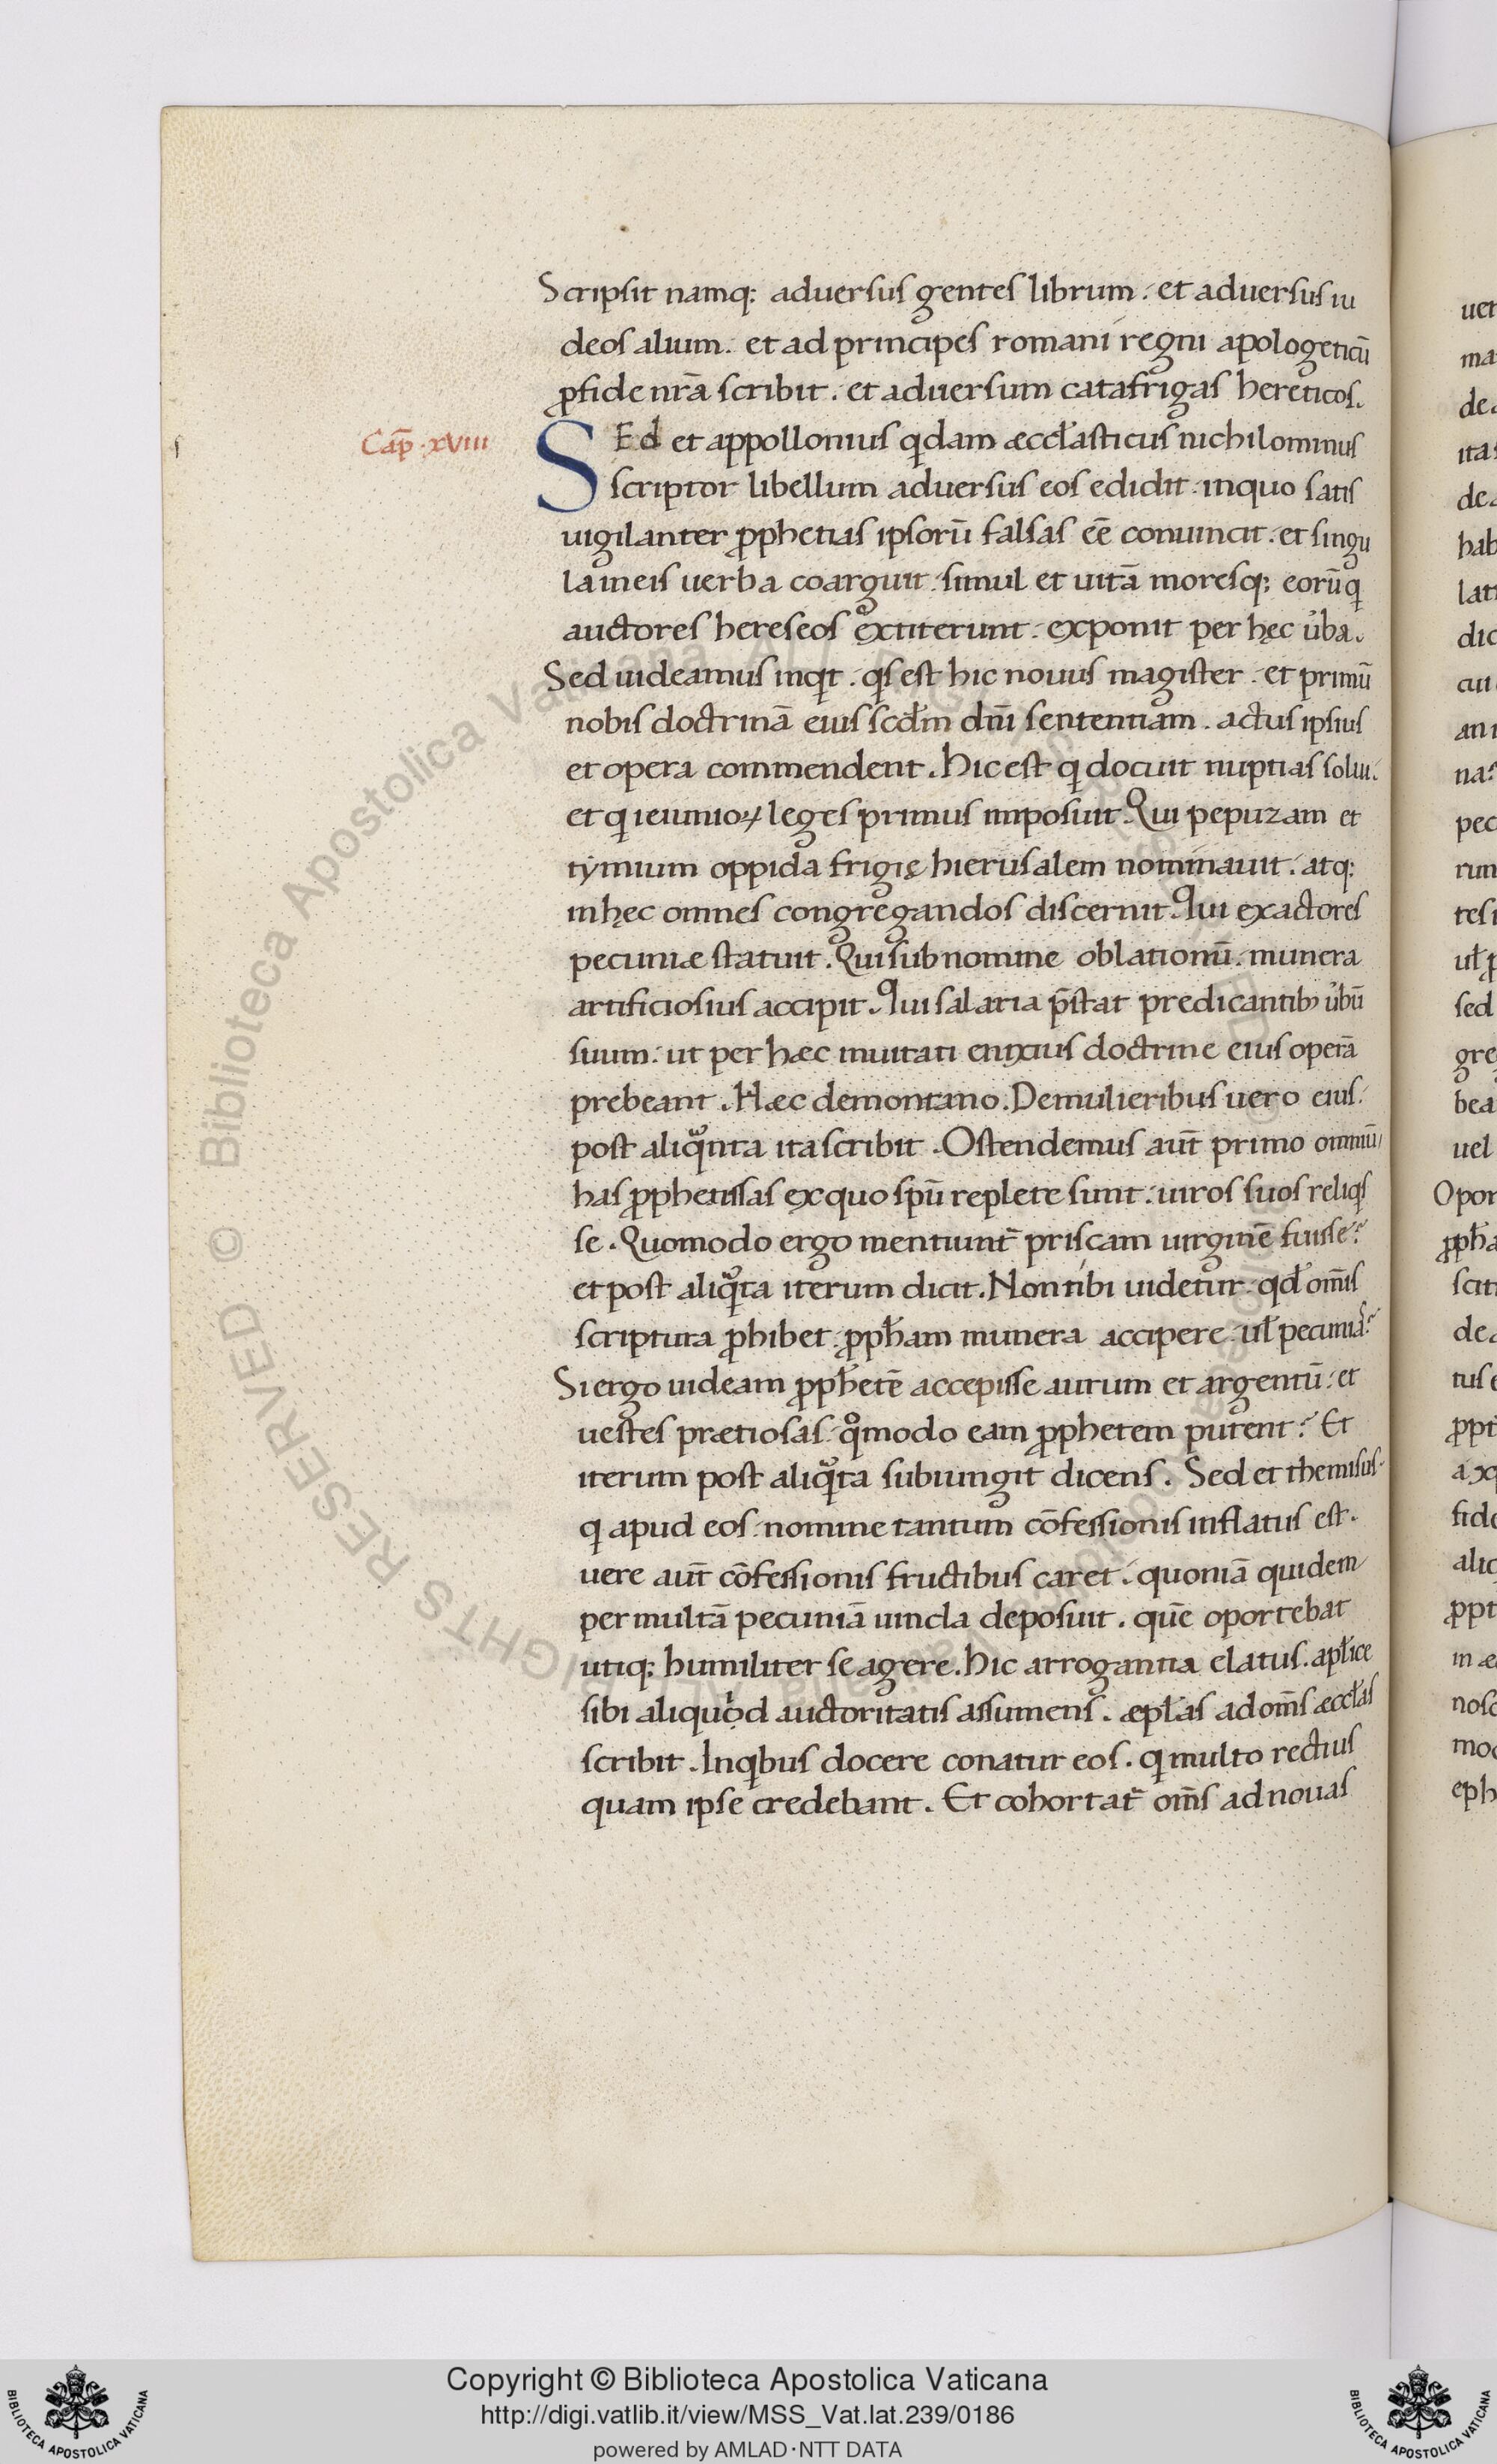 Scripsit namq; aduersus gentes librum. et aduersus iu
deos alium. et ad principes romani regni apologeticū
ꝓ fide nr̄a scribit. et aduersum catafrigas hereticos.
Cap̄. xviii
SEd et appollonius qdam æccl̄asticus nichilominus
scriptor libellum aduersus eos edidit. inquo satis
uigilanter ꝓphetias ipsorū falsas eē conuincit. et singu
la in eis uerba coarguit. simul et uitā moresq; eorū q
auctores hereseos extiterunt. exponit per hęc u̓ba.
Sed uideamus inqt. qs est hic nouus magister. et primū
nobis doctrinā eius scd̄m dn̄i sententiam. actus ipsius
et opera commendent. Hic est q docuit nuptias solui.
et q ieiunioꝝ leges primus imposuit. Qui pepuzam et
tymium oppida frigię hierusalem nominauit. atq;
in hęc omnes congregandos discernit. Qui exactores
pecuniæ statuit. Qui sub nomine oblationū. munera
artificiosius accipit. Qui salaria p̄stat predicantibꝰ u̓bū
suum. ut per hæc inuitati enixius doctrine eius operā
prebeant. Hæc demontano. Demulieribus uero eius.
post aliqͣnta ita scribit. Ostendemus aut̄ primo omniū
has ꝓphetissas exquo spū replete sunt. uiros suos reliqs
se. Quomodo ergo mentiunt᷑ priscam uirginē fuisse?
et post aliqͣta iterum dicit. Non tibi uidetur. qd̄ om̄is
scriptura ꝓhibet. ꝓph̄am munera accipere. ul̄ pecuniā?
Si ergo uideam ꝓph̄etē accepisse aurum et argentū. et
uestes prætiosas. qͦmodo eam ꝓphetem putent? Et
iterum post aliqͣta subiungit dicens. Sed et themisus.
q apud eos. nomine tantum cōfessionis inflatus est.
uere aut̄ cōfessionis fructibus caret. quoniā quidem
per multā pecuniā uincla deposuit. quē oportebat
utiq; humiliter se agere. Hic arrogantia elatus. apl̄ice
sibi aliquid auctoritatis assumens. æpl̄as ad om̄s æccl̄as
scribit. Inqbus docere conatur eos. q multo rectius
quam ipse credebant. Et cohortat᷑ om̄s ad nouas
Copyright © Biblioteca Apostolica Vaticana
http://digi.vatlib.it/view/MSS_Vat.lat.239/0186
powered by AMLAD·NTT DATA